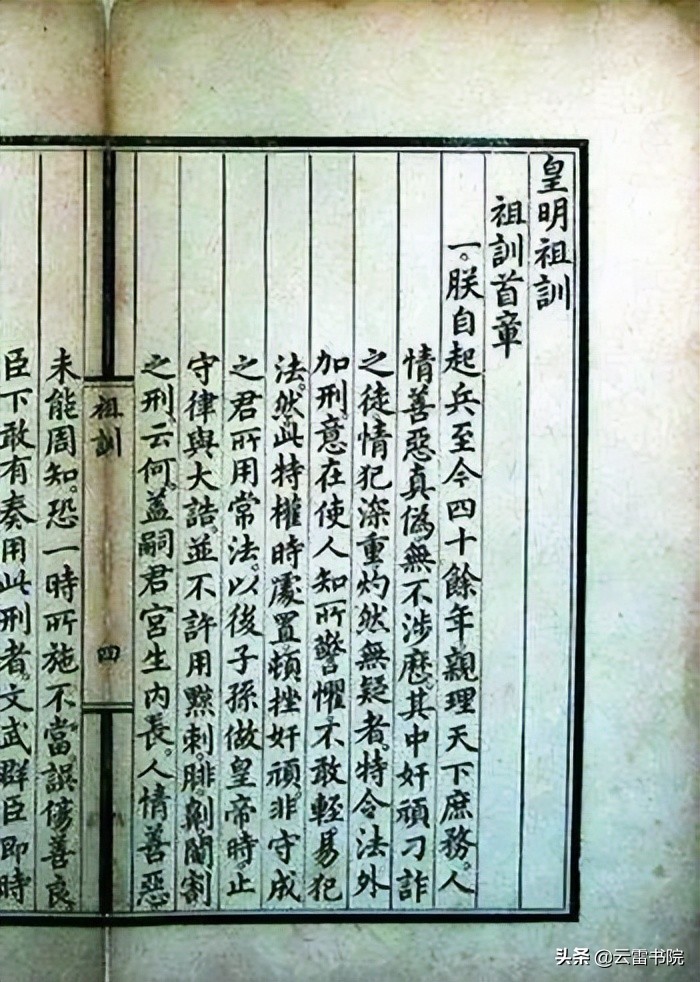 皇明祖訓
祖訓首章
一。朕自起兵至今四十餘年親理天下庶務。人
情善惡真偽。無不涉歷其中奸頑刁詐
之徒情犯深重灼然無疑者。特令法外
加刑。意在使人知所警懼。不敢輕易犯
法。然此特權時處置。頓挫奸頑。非守成
之君所用常法。以後子孫做皇帝時。止
守律與大誥。並不許用黥刺。腓劓閹割
之刑。云何。蓋嗣君宮生內長。人情善惡
祖訓
四
未能周知。恐一時所施不當。誤傷善良。
臣下敢有奏用此刑者。文武群臣即時
头条 @云雷书院